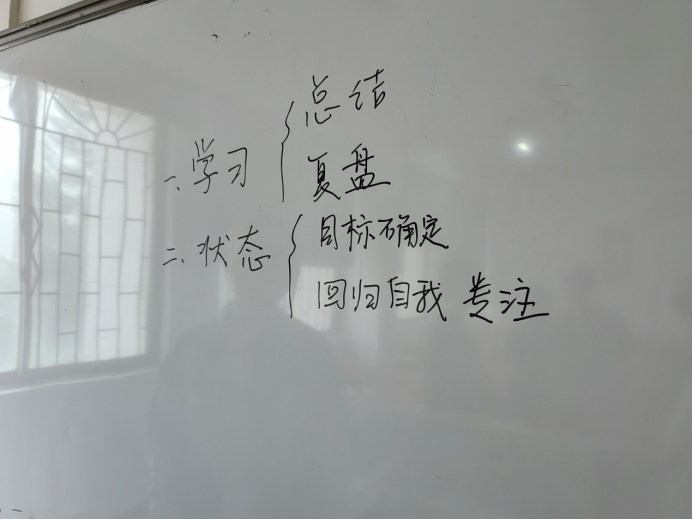 总结
一、学习
复盘
目标确定
二、状态
回归自我 专注